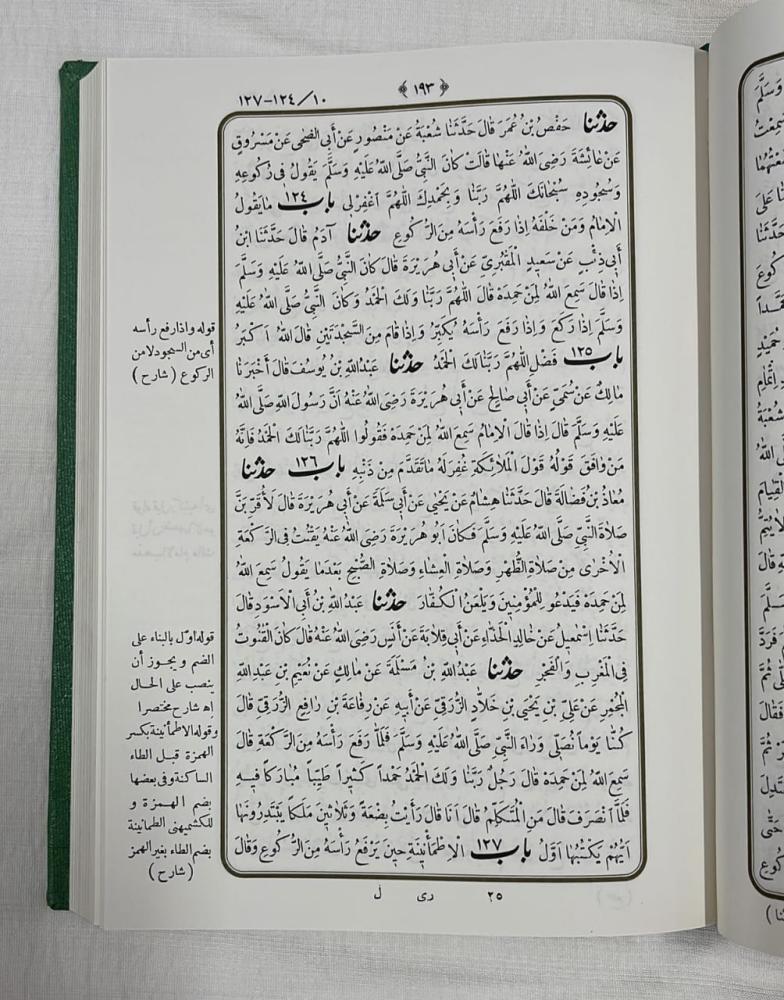 ١٠/١٢٤-١٢٧
﴿١٩٣﴾
حدثنا حَفْصُ بْنُ عُمَرَ قَالَ حَدَّثَنَا شُعْبَةُ عَنْ مَنْصُورٍ عَنْ أَبِي الضُّحَى عَنْ مَسْرُوقٍ
عَنْ عَائِشَةَ رَضِيَ اللهُ عَنْهَا قَالَتْ كَانَ النَّبِيُّ صَلَّى اللهُ عَلَيْهِ وَسَلَّمَ يَقُولُ فِي رُكُوعِهِ
وَسُجُودِهِ سُبْحَانَكَ اللَّهُمَّ رَبَّنَا وَبِحَمْدِكَ اللَّهُمَّ اغْفِرْ لِي باب ١٢٤ مَا يَقُولُ
الْإِمَامُ وَمَنْ خَلْفَهُ إِذَا رَفَعَ رَأْسَهُ مِنَ الرُّكُوعِ حدثنا آدَمُ قَالَ حَدَّثَنَا ابْنُ
أَبِي ذِئْبٍ عَنْ سَعِيدٍ الْمَقْبُرِيِّ عَنْ أَبِي هُرَيْرَةَ قَالَ كَانَ النَّبِيُّ صَلَّى اللهُ عَلَيْهِ وَسَلَّمَ
إِذَا قَالَ سَمِعَ اللهُ لِمَنْ حَمِدَهُ قَالَ اللَّهُمَّ رَبَّنَا وَلَكَ الْحَمْدُ وَكَانَ النَّبِيُّ صَلَّى اللهُ عَلَيْهِ
وَسَلَّمَ إِذَا رَكَعَ وَإِذَا رَفَعَ رَأْسَهُ يُكَبِّرُ وَإِذَا قَامَ مِنَ السَّجْدَتَيْنِ قَالَ اللهُ أَكْبَرُ
باب ١٢٥ فَضْلِ اللَّهُمَّ رَبَّنَا لَكَ الْحَمْدُ حدثنا عَبْدُ اللهِ بْنُ يُوسُفَ قَالَ أَخْبَرَنَا
مَالِكٌ عَنْ سُمَيٍّ عَنْ أَبِي صَالِحٍ عَنْ أَبِي هُرَيْرَةَ رَضِيَ اللهُ عَنْهُ أَنَّ رَسُولَ اللهِ صَلَّى اللهُ
عَلَيْهِ وَسَلَّمَ قَالَ إِذَا قَالَ الْإِمَامُ سَمِعَ اللهُ لِمَنْ حَمِدَهُ فَقُولُوا اللَّهُمَّ رَبَّنَا لَكَ الْحَمْدُ فَإِنَّهُ
مَنْ وَافَقَ قَوْلُهُ قَوْلَ الْمَلَائِكَةِ غُفِرَ لَهُ مَا تَقَدَّمَ مِنْ ذَنْبِهِ باب ١٢٦ حدثنا
مُعَاذُ بْنُ فَضَالَةَ قَالَ حَدَّثَنَا هِشَامٌ عَنْ يَحْيَى عَنْ أَبِي سَلَمَةَ عَنْ أَبِي هُرَيْرَةَ قَالَ لَأُقَرِّبَنَّ
صَلَاةَ النَّبِيِّ صَلَّى اللهُ عَلَيْهِ وَسَلَّمَ فَكَانَ أَبُو هُرَيْرَةَ رَضِيَ اللهُ عَنْهُ يَقْنُتُ فِي الرَّكْعَةِ
الْأُخْرَى مِنْ صَلَاةِ الظُّهْرِ وَصَلَاةِ الْعِشَاءِ وَصَلَاةِ الصُّبْحِ بَعْدَمَا يَقُولُ سَمِعَ اللهُ
لِمَنْ حَمِدَهُ فَيَدْعُو لِلْمُؤْمِنِينَ وَيَلْعَنُ الْكُفَّارَ حدثنا عَبْدُ اللهِ بْنُ أَبِي الْأَسْوَدِ قَالَ
حَدَّثَنَا إِسْمَعِيلُ عَنْ خَالِدٍ الْحَذَّاءِ عَنْ أَبِي قِلَابَةَ عَنْ أَنَسٍ رَضِيَ اللهُ عَنْهُ قَالَ كَانَ الْقُنُوتُ
فِي الْمَغْرِبِ وَالْفَجْرِ حدثنا عَبْدُ اللهِ بْنُ مَسْلَمَةَ عَنْ مَالِكٍ عَنْ نُعَيْمِ بْنِ عَبْدِ اللهِ
الْمُجْمِرِ عَنْ عَلِيِّ بْنِ يَحْيَى بْنِ خَلَّادٍ الزُّرَقِيِّ عَنْ أَبِيهِ عَنْ رِفَاعَةَ بْنِ رَافِعٍ الزُّرَقِيِّ قَالَ
كُنَّا يَوْمًا نُصَلِّي وَرَاءَ النَّبِيِّ صَلَّى اللهُ عَلَيْهِ وَسَلَّمَ فَلَمَّا رَفَعَ رَأْسَهُ مِنَ الرَّكْعَةِ قَالَ
سَمِعَ اللهُ لِمَنْ حَمِدَهُ قَالَ رَجُلٌ رَبَّنَا وَلَكَ الْحَمْدُ حَمْدًا كَثِيرًا طَيِّبًا مُبَارَكًا فِيهِ
فَلَمَّا انْصَرَفَ قَالَ مَنِ الْمُتَكَلِّمُ قَالَ أَنَا قَالَ رَأَيْتُ بِضْعَةً وَثَلَاثِينَ مَلَكًا يَبْتَدِرُونَهَا
أَيُّهُمْ يَكْتُبُهَا أَوَّلُ باب ١٢٧ الْاِطْمَأْنِينَةِ حِينَ يَرْفَعُ رَأْسَهُ مِنَ الرُّكُوعِ وَقَالَ
٢٥ رى ل
قوله واذا رفع رأسه
أى من السجود لا من
الركوع (شارح)
قوله اوّل بالبناء على
الضم ويجوز أن
ينصب على الحال
اه شارح مختصرا
وقوله الاطمأنينة بكسر
الهمزة قبل الطاء
الساكنة وفى بعضها
بضم الهمزة و
للكشميهنى الطمأنينة
بضم الطاء بغير الهمز
(شارح)